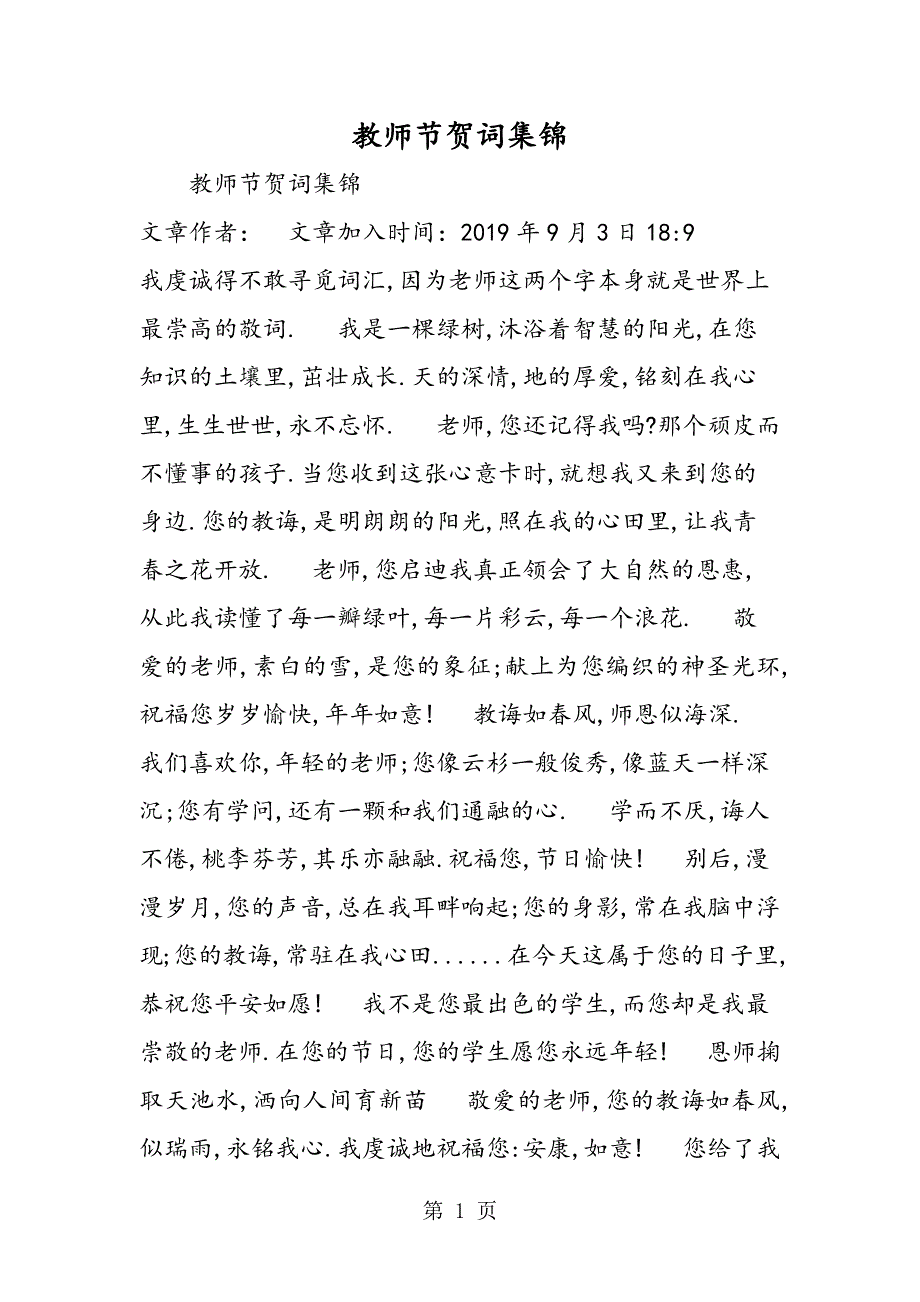 教师节贺词集锦
教师节贺词集锦
文章作者： 文章加入时间：2019 年 9 月 3 日 18:9
我虔诚得不敢寻觅词汇,因为老师这两个字本身就是世界上
最崇高的敬词. 我是一棵绿树,沐浴着智慧的阳光,在您
知识的土壤里,茁壮成长.天的深情,地的厚爱,铭刻在我心
里,生生世世,永不忘怀. 老师,您还记得我吗?那个顽皮而
不懂事的孩子.当您收到这张心意卡时,就想我又来到您的
身边.您的教诲,是明朗朗的阳光,照在我的心田里,让我青
春之花开放. 老师,您启迪我真正领会了大自然的恩惠,
从此我读懂了每一瓣绿叶,每一片彩云,每一个浪花. 敬
爱的老师,素白的雪,是您的象征;献上为您编织的神圣光环,
祝福您岁岁愉快,年年如意! 教诲如春风,师恩似海深.
我们喜欢你,年轻的老师;您像云杉一般俊秀,像蓝天一样深
沉;您有学问,还有一颗和我们通融的心. 学而不厌,诲人
不倦,桃李芬芳,其乐亦融融.祝福您,节日愉快! 别后,漫
漫岁月,您的声音,总在我耳畔响起;您的身影,常在我脑中浮
现;您的教诲,常驻在我心田......在今天这属于您的日子里,
恭祝您平安如愿! 我不是您最出色的学生,而您却是我最
崇敬的老师.在您的节日,您的学生愿您永远年轻! 恩师掬
取天池水,洒向人间育新苗 敬爱的老师,您的教诲如春风,
似瑞雨,永铭我心.我虔诚地祝福您:安康,如意! 您给了我
第 1 页